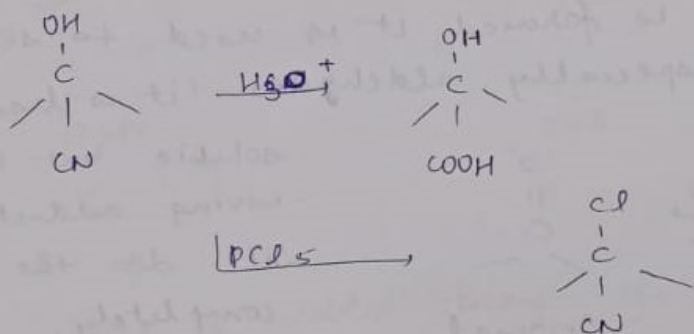 OH
C
CN
H3O+
OH
C
COOH
PCl5
Cl
C
CN